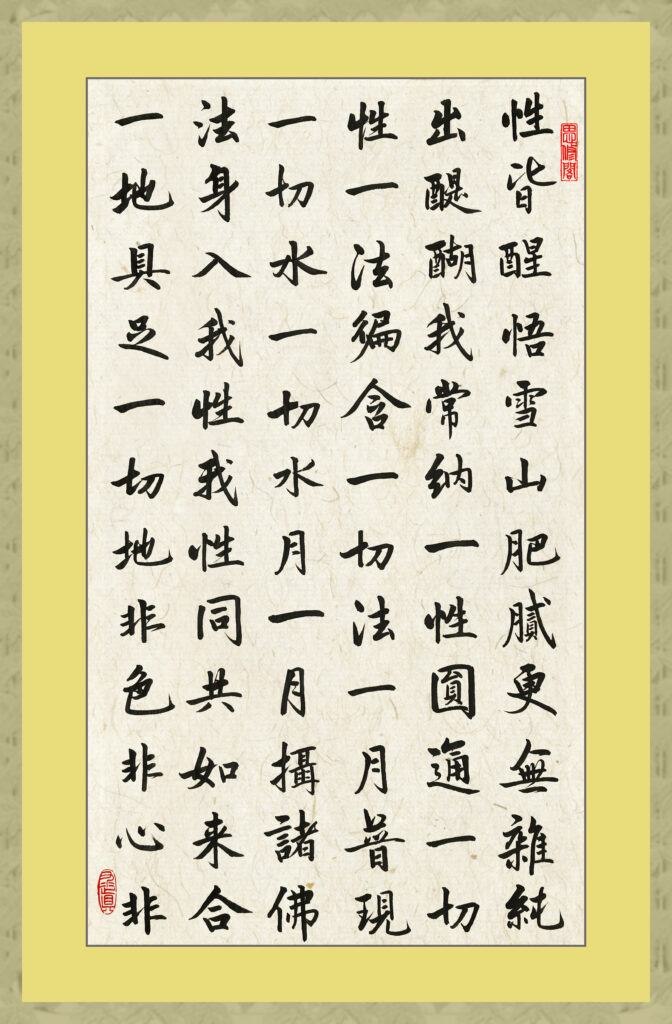 思修閣
性皆醒悟雪山肥膩更無雜純
出醍醐我常納一性圓通一切
性一法徧含一切法一月普現
一切水一切水月一月攝諸佛
法身入我性我性同共如来合
一地具足一切地非色非心非